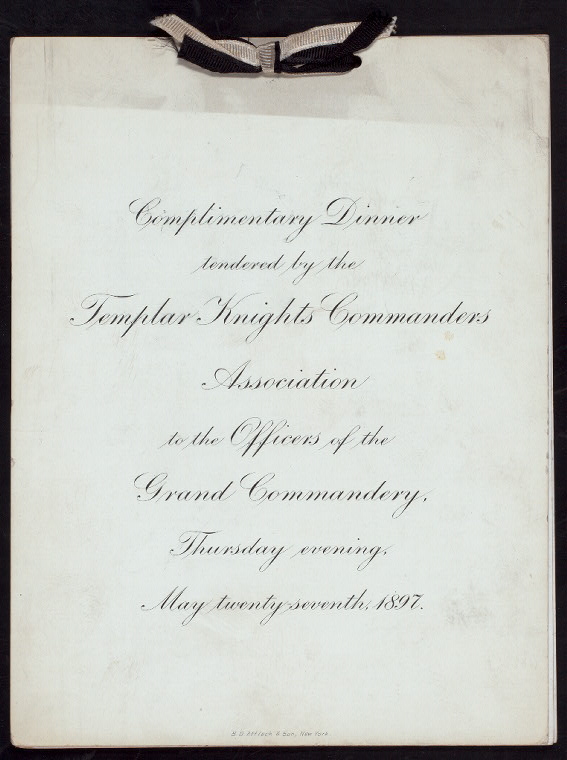 Complimentary Dinner
tendered by the
Templar Knights Commanders
Association
to the Officers of the
Grand Commandery,
Thursday evening,
May twenty seventh, 1897.
& Son, New York